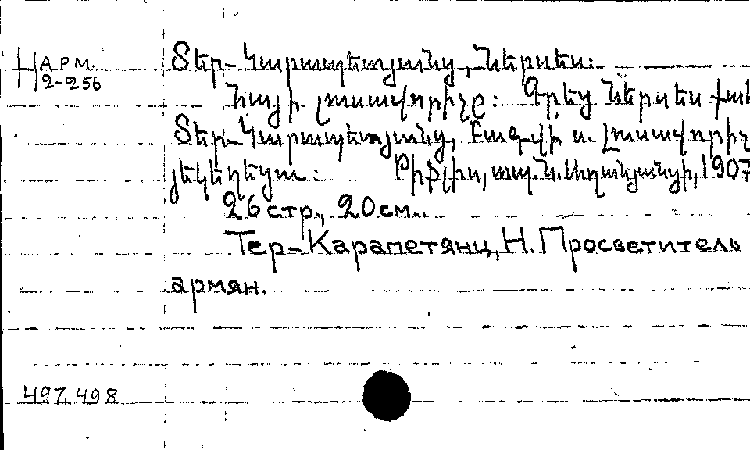 Н АРМ.
2-256
Տեր-Կարապետյանց, Ներսես։
Հայի լուսավորիչը։ Գրեց Ներսես քահ
Տեր-Կարապետյանց, Բագվի ս. Լուսավորիչ
յեկեղեցու։ Թիֆլիս, տպ. Ն. Աղանյանցի, 1907
26 стр., 20 см.
Тер-Карапетянц, Н. Просветитель
армян.
497498